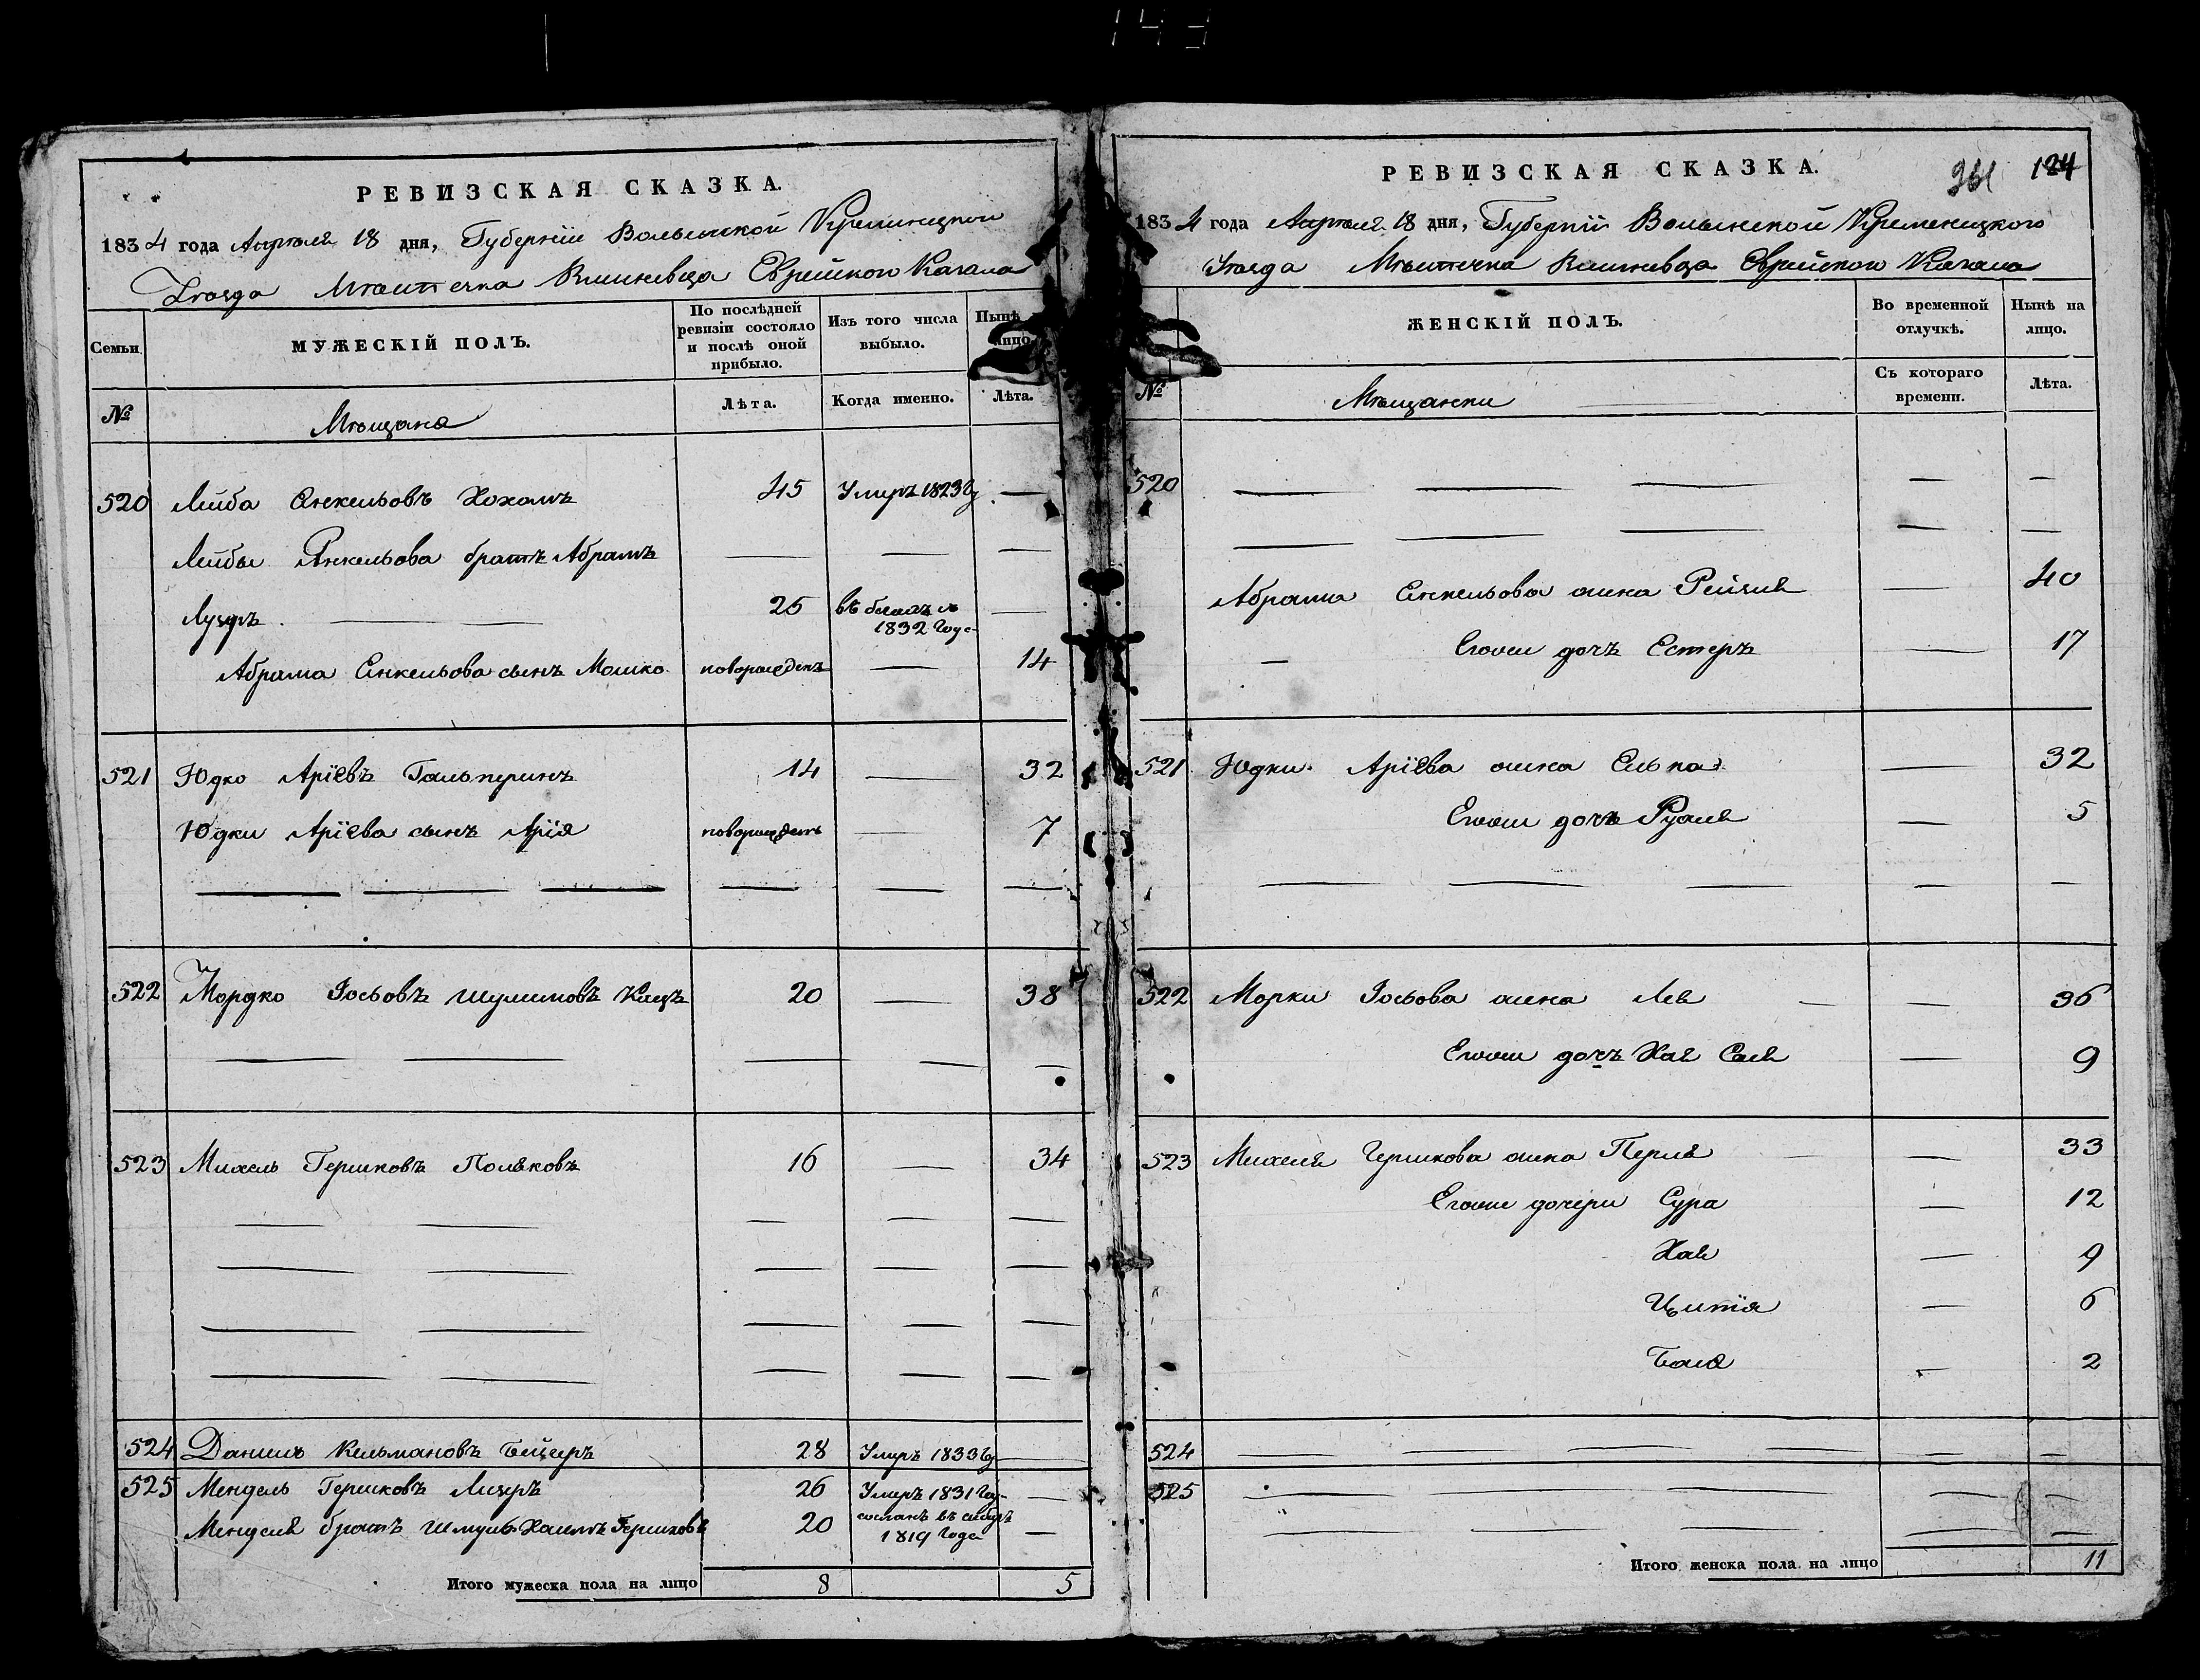 РЕВИЗСКАЯ СКАЗКА.
1834 года Апреля 18 дня, Губернiи Волынской Кременецкого
Уезда Местечка Вишневца Еврейского Кагала
Семьи
МУЖЕСКIЙ ПОЛЪ.
По послѣдней ревизiи состояло и послѣ оной прибыло.
Изъ того числа выбыло.
Нынѣ лицо
№
Мещане
Лѣта.
Когда именно.
Лѣта.
520 Лейба Янкельовъ Хохамъ 45 Умеръ 1823 —
Лейбы Янкельова братъ Абрамъ — — —
Лузеръ — — 25 въ бегахъ съ 1832 года —
Абрама Янкельова сынъ Мошко новорожденъ — 14
521 Юдко Арiевъ Гальперинъ 14 — 32
Юдки Арiева сынъ Арiя новорожденъ — 7
— — — — — —
522 Мордко Iосьовъ Кацъ 20 — 38
— — — — —
523 Михель Гершковъ Поляковъ 16 — 34
— — — — —
— — — — —
— — — — —
— — — — —
524 Даниель Кельмановъ 28 Умеръ 1833 —
525 Мендель Гершковъ Лизеръ 26 Умеръ 1831 год —
Менделя братъ Шмуль Хаимъ Гершковъ 20 сосланъ въ сибиръ 1819 года —
Итого мужеска пола на лицо 8 5
РЕВИЗСКАЯ СКАЗКА.
361 124
1834 года Апреля 18 дня, Губернiи Волынской Кременецкого
Уезда Местечка Вишневца Еврейского Кагала
ЖЕНСКIЙ ПОЛЪ.
Во временной отлучкѣ.
Нынѣ на лицо.
№
Мещанки
Съ котораго времени.
Лѣта.
520 — — — — —
— — — — —
Абрама Янкельова жена Рейзя — 40
— Егоже дочъ Естеръ — 17
521 Юдки Арiева жена — 32
Егоже дочъ — 5
— — — — —
522 Морки Iосьова жена Лея — — 36
Егоже дочъ Хая Сая — 9
523 Михеля Гершкова жена Перля — — 33
Егоже дочери Сура — 12
Хая — 9
— 6
— 2
524 — — — — — —
525 — — — — —
— — — — —
Итого женска пола на лицо 11